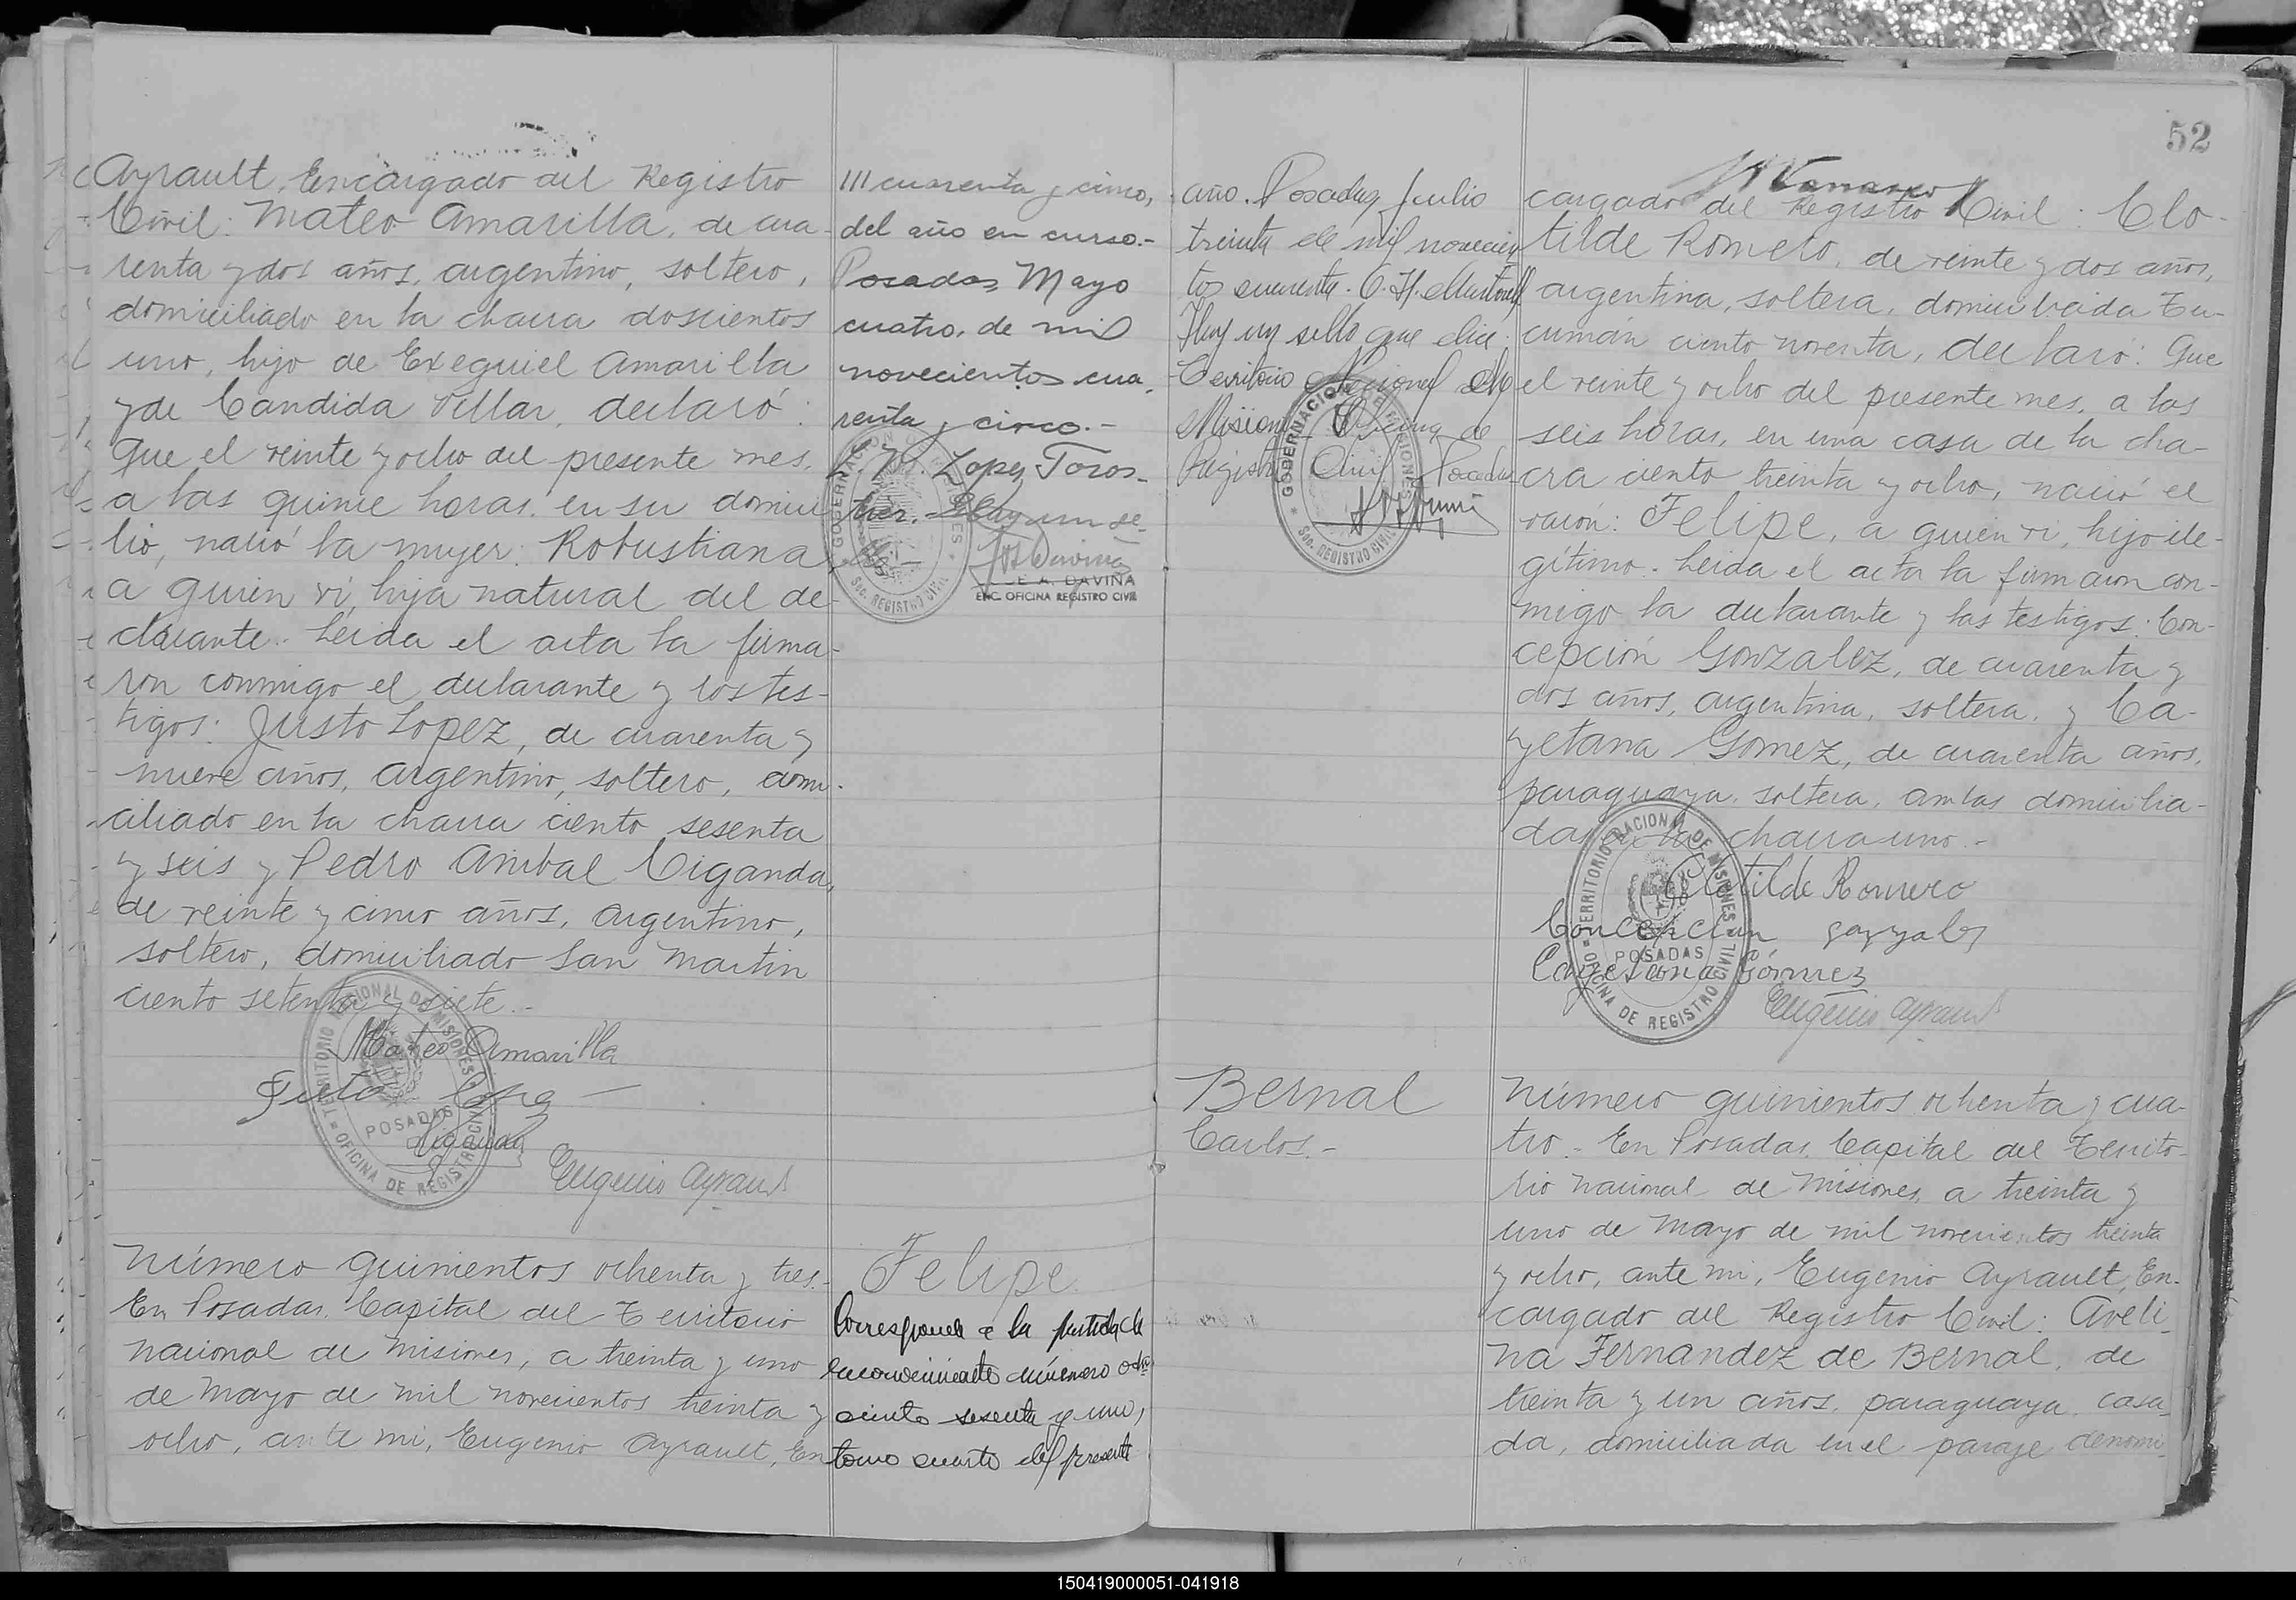 Ayrault, Encargado del Registro
Civil: Mateo Amarilla, de cua-
renta y dos años, argentino, soltero,
domiciliado en la chacra doscientos
uno, hijo de Exequiel Amarilla
y de Candida Villar, declaró:
Que el veinte y ocho del presente mes,
a las quince horas, en su domici
lio, nació la mujer: Robustiana
a quien vi, hija natural del de-
clarante. Leida el acta la firma-
ron conmigo el declarante y los tes-
tigos: Justo Lopez, de cuarenta y
nueve años, argentino, soltero, domi-
ciliado en la chacra ciento sesenta
y seis y Pedro Anibal Ciganda,
de veinte y cinco años, argentino,
soltero, domiciliado San Martin
ciento setenta y siete.-
Mateo Amarilla
Justo Lopez
Ciganda
Eugenio Ayrault
TERRITORIO NACIONAL DE MISIONES
POSADAS
OFICINA DE REGISTRO CIVIL
Número quinientos ochenta y tres.-
En Posadas, Capital del Territorio
nacional de Misiones, a treinta y uno
de Mayo de mil novecientos treinta y
ocho, ante mi, Eugenio Ayrault, En
III cuarenta y cinco,
del año en curso.-
Posadas, Mayo
cuatro, de mil
novecientos cua-
renta y cinco.-
Lopez Toros-
Hay un se-
GOBERNACION DE MISIONES
Sec. REGISTRO CIVIL
E A. DAVIÑA
ENC. OFICINA REGISTRO CIVIL
Felipe
Corresponde a la partida de
reconocimiento número
ciento sesenta y uno,
tomo cuarto del presente
año. Posadas, Julio
treinta de mil novecien
tos cuarenta.
Hay un sello que dice:
Territorio Nacional de
Misiones Oficina de
Registro Civil Posadas
GOBERNACION DE MISIONES
Sec. REGISTRO CIVIL
Bernal
Carlos.-
52
cargado del Registro Civil: Clo-
tilde Romero, de veinte y dos años,
argentina, soltera, domiciliada Tu-
cumán ciento noventa, declaró: Que
el veinte y ocho del presente mes, a las
seis horas, en una casa de la cha-
cra ciento treinta y ocho, nació el
varón: Felipe, a quien vi, hijo ile-
gítimo. Leida el acta la firmaron con-
migo la declarante y las testigos: Con-
cepción Gonzalez, de cuarenta y
dos años, argentina, soltera, y Ca-
yetana Gomez, de cuarenta años,
paraguaya, soltera, ambas domicilia-
das en la chacra uno.-
Clotilde Romero
Concepcion gonzalez
Cayetana Gómez
Eugenio Ayrault
TERRITORIO NACIONAL DE MISIONES
POSADAS
OFICINA DE REGISTRO CIVIL
Número quinientos ochenta y cua-
tro.- En Posadas, Capital del Territo-
rio nacional de Misiones, a treinta y
uno de Mayo de mil novecientos treinta
y ocho, ante mi, Eugenio Ayrault, En-
cargado del Registro Civil: Aveli-
na Fernandez de Bernal, de
treinta y un años, paraguaya, casa-
da, domiciliada en el paraje denomi-
150419000051-041918